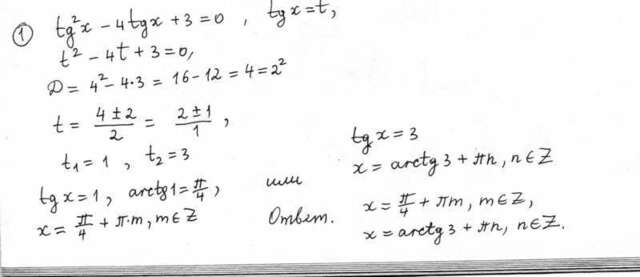 ① tg²x − 4tgx + 3 = 0 , tgx = t,
t² − 4t + 3 = 0,
D = 4² − 4·3 = 16 − 12 = 4 = 2²
t = (4 ± 2)/2 = (2 ± 1)/1 ,
t₁ = 1 , t₂ = 3
tgx = 1, arctg1 = π/4,
x = π/4 + π·m, m ∈ Z
или
tgx = 3
x = arctg3 + πn, n ∈ Z
Ответ. x = π/4 + πm, m ∈ Z,
x = arctg3 + πn, n ∈ Z.